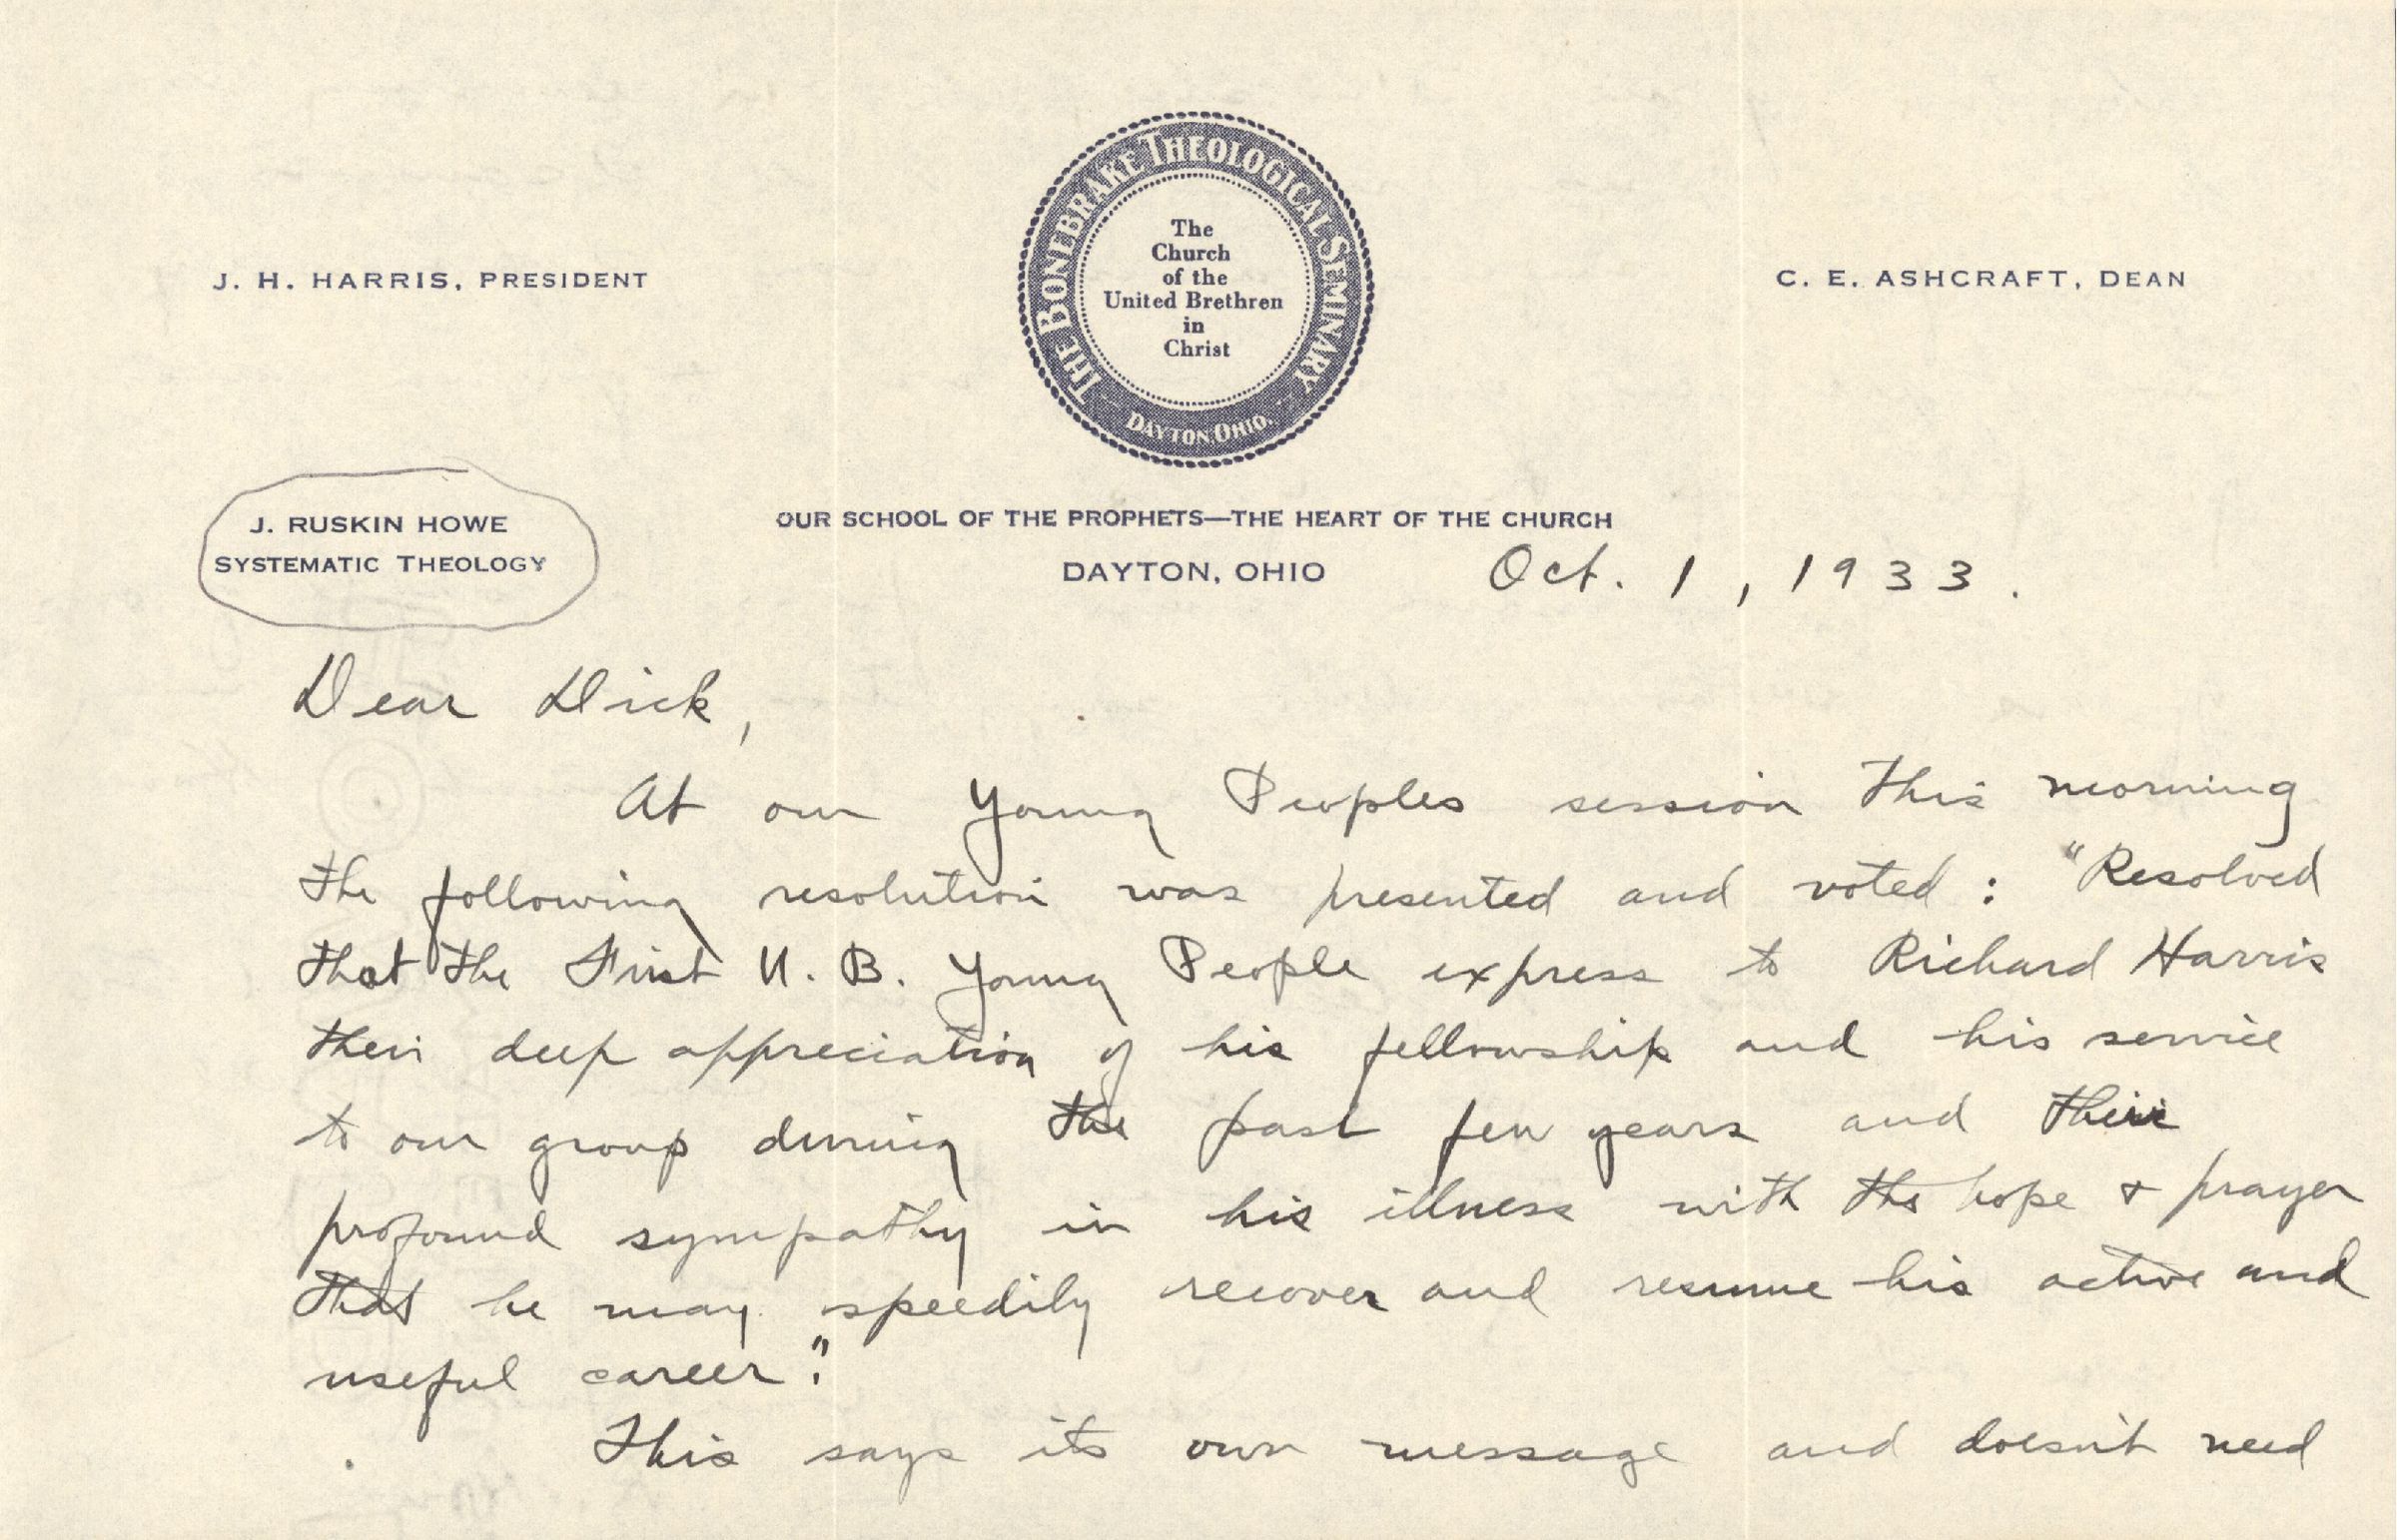 THE BONEBRAKE THEOLOGICAL SEMINARY
DAYTON, OHIO.
The
Church
of the
United Brethren
in
Christ
J. H. HARRIS, PRESIDENT
C. E. ASHCRAFT, DEAN
J. RUSKIN HOWE
SYSTEMATIC THEOLOGY
OUR SCHOOL OF THE PROPHETS—THE HEART OF THE CHURCH
DAYTON, OHIO Oct. 1, 1933.
Dear Dick,
At our Young Peoples session this morning
the following resolution was presented and voted: "Resolved
that the First U. B. Young People express to Richard Harris
their deep appreciation of his fellowship and his service
to our group during the past few years and their
profound sympathy in his illness with the hope & prayer
that he may speedily recover and resume his active and
useful career."
This says its own message and doesn't need